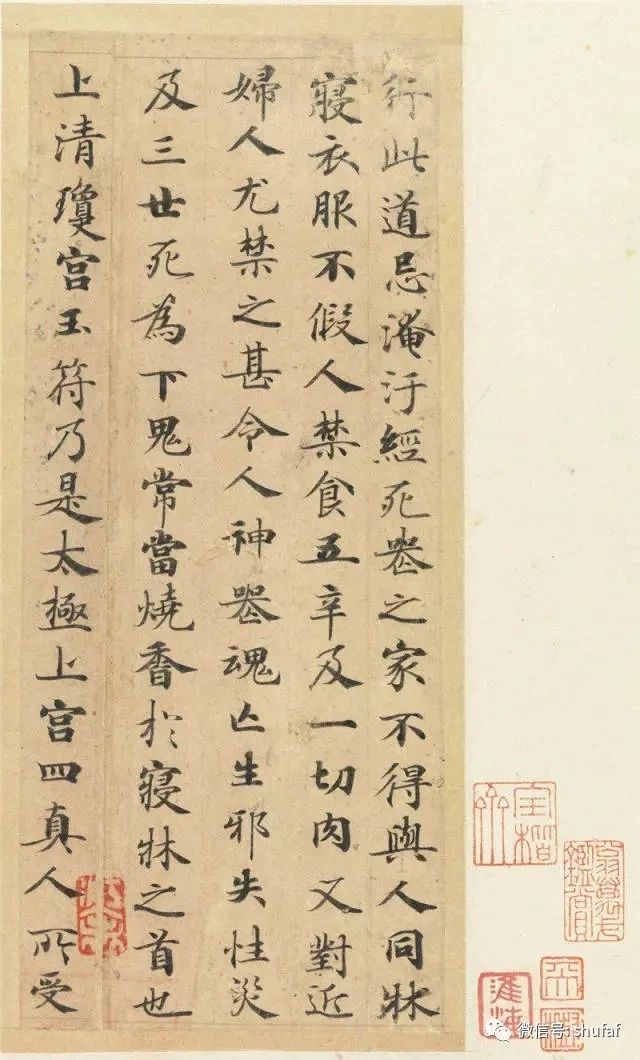 行此道忌淹汙經死䘮之家不得與人同牀
寢衣服不假人禁食五辛及一切肉又對近
婦人尤禁之甚令人神䘮魂亡生邪失性災
及三世死為下鬼常當燒香於寢牀之首也
上清瓊宮玉符乃是太極上宮四真人所受
微信号: shufaf